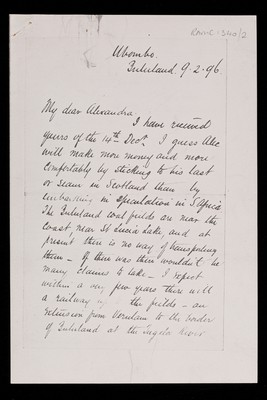 Ubombo.
Zululand. 9.2.96.
My dear Alexandra
I have received
yours of the 14th Decr. I guess Alec
will make more money and more
comfortably by sticking to his last
or seam in Scotland than by
embarking in speculation in S Africa
The Zululand coal fields are near the
coast, near St Lucia Lake, and at
present there is no way of transporting
them - If there was there wouldn't be
many claims to take - I expect
within a very few years there will
a railway the fields - an
extension from Verulam to the border
of Zululand at the Tugela River